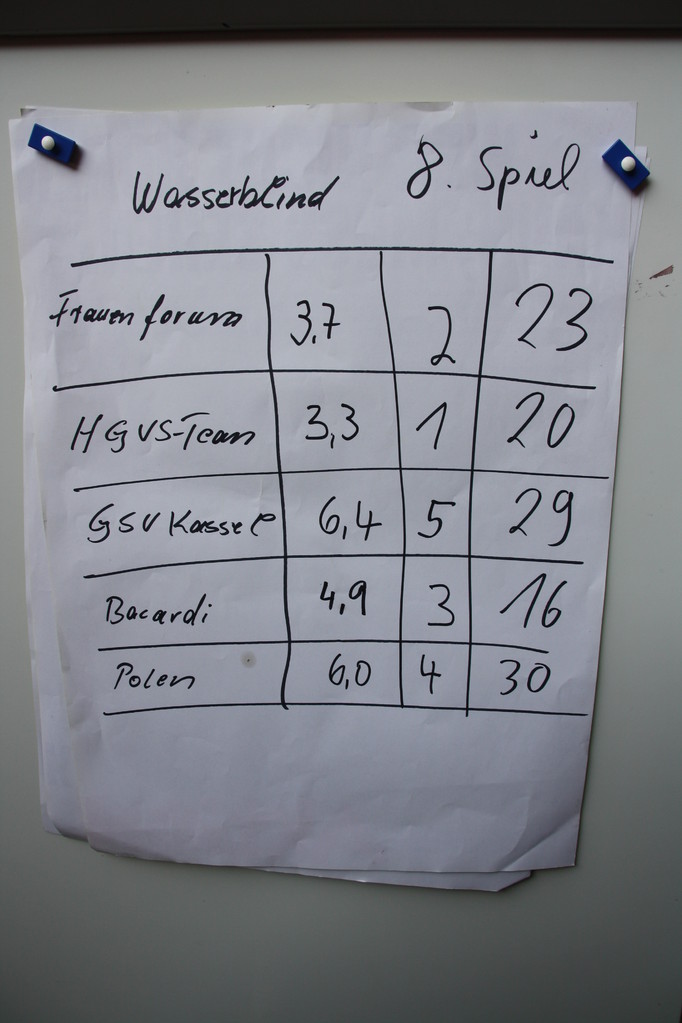 Wasserblind 8. Spiel
Frauenforum 3,7 2 23
HGVS-Team 3,3 1 20
GSV Kassel 6,4 5 29
Bacardi 4,9 3 16
Polen 6,0 4 30